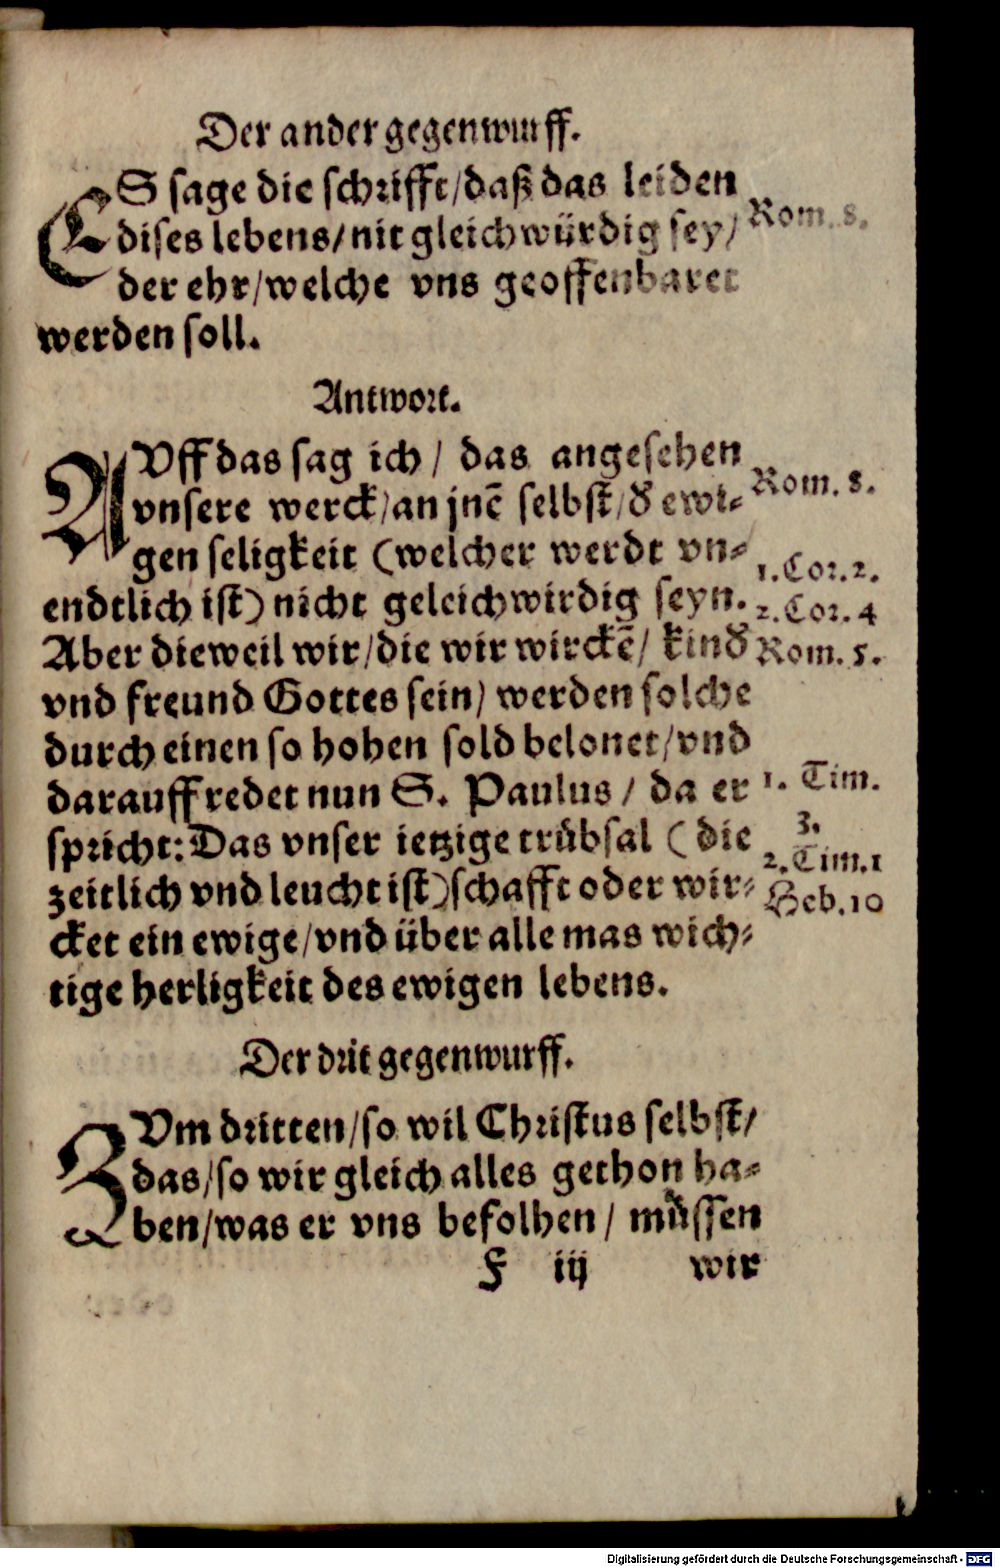 Der ander gegenwurff.
ES sage die schrifft/daß das leiden
dises lebens/nit gleichwürdig sey/
der ehr/welche vns geoffenbaret
werden soll.
Rom. 8.
Antwort.
AVff das sag ich/ das angesehen
vnsere werck/an jnē selbst/d̕ ewi-
gen seligkeit (welcher werdt vn-
endtlich ist) nicht geleichwirdig seyn.
Aber dieweil wir/die wir wirckē/ kind̕
vnd freund Gottes sein/ werden solche
durch einen so hohen sold belonet/vnd
darauff redet nun S. Paulus/ da er
spricht: Das vnser ietzige trübsal (die
zeitlich vnd leucht ist)schafft oder wir-
cket ein ewige/vnd über alle mas wich-
tige herligkeit des ewigen lebens.
Rom. 8.
1.Cor.2.
2.Cor.4
Rom. 5.
1. Tim.
3.
2.Tim.1
Heb.10
Der drit gegenwurff.
ZVm dritten/so wil Christus selbst/
das/so wir gleich alles gethon ha-
ben/was er vns befolhen/ müssen
F iij wir
Digitalisierung gefördert durch die Deutsche Forschungsgemeinschaft - DFG